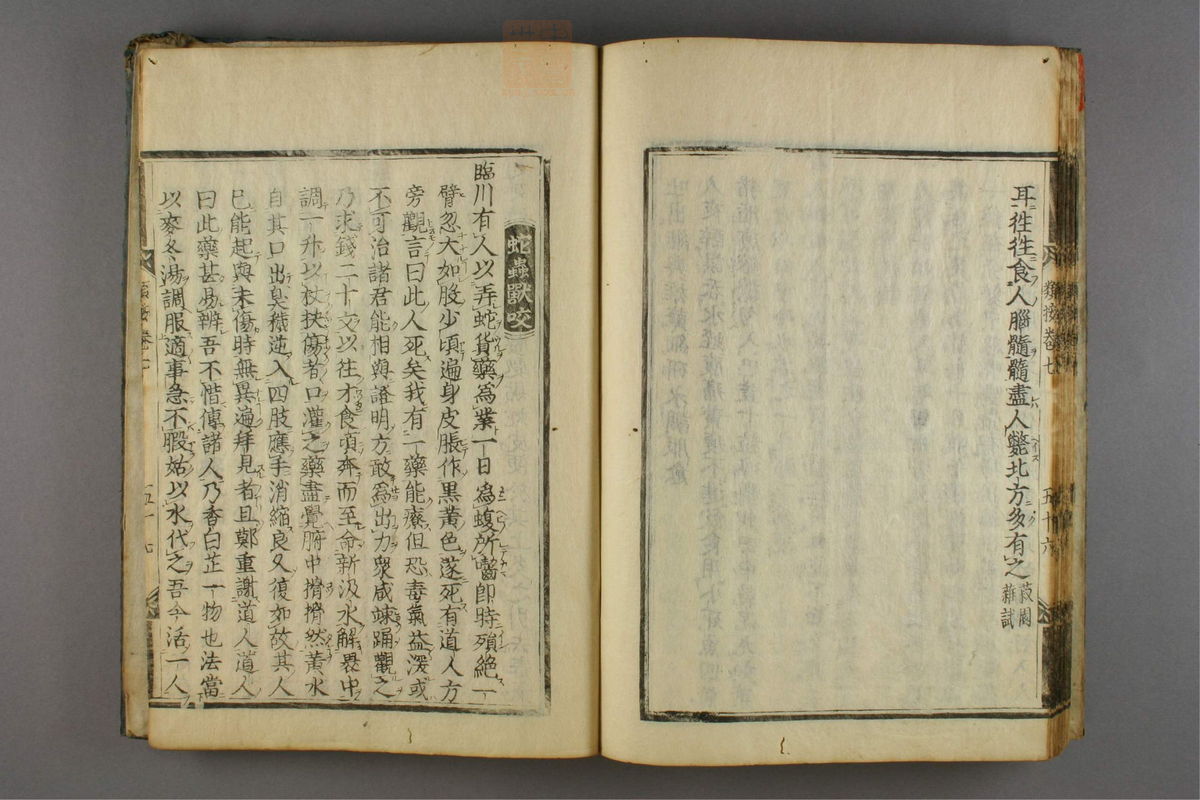 耳徃徃食人腦髓髓盡人斃北方多有之 菽園
雜試
類按卷七 五十六
蛇蟲獸咬
臨川有人以弄蛇貨藥爲業一日爲蝮所嚙即時殞絶一
臂忽大如股少頃遍身皮脹作黒黄色遂死有道人方
旁觀言曰此人死矣我有一藥能療但恐毒氣益深或
不可治諸君能相與證明方敢爲出力衆咸竦踊觀之
乃求錢二十文以往才食頃奔而至命新汲水解裹中
調一升以杖抉傷者口灌之藥盡覺腑中搰搰然黄水
自其口出臭穢逆入四肢應手消縮良久復如故其人
已能起與未傷時無異遍拜見者且鄭重謝道人道人
曰此藥甚易辨吾不惜傳諸人乃香白芷一物也法當
以麥冬湯調服適事急不暇姑以水代之吾今活一人